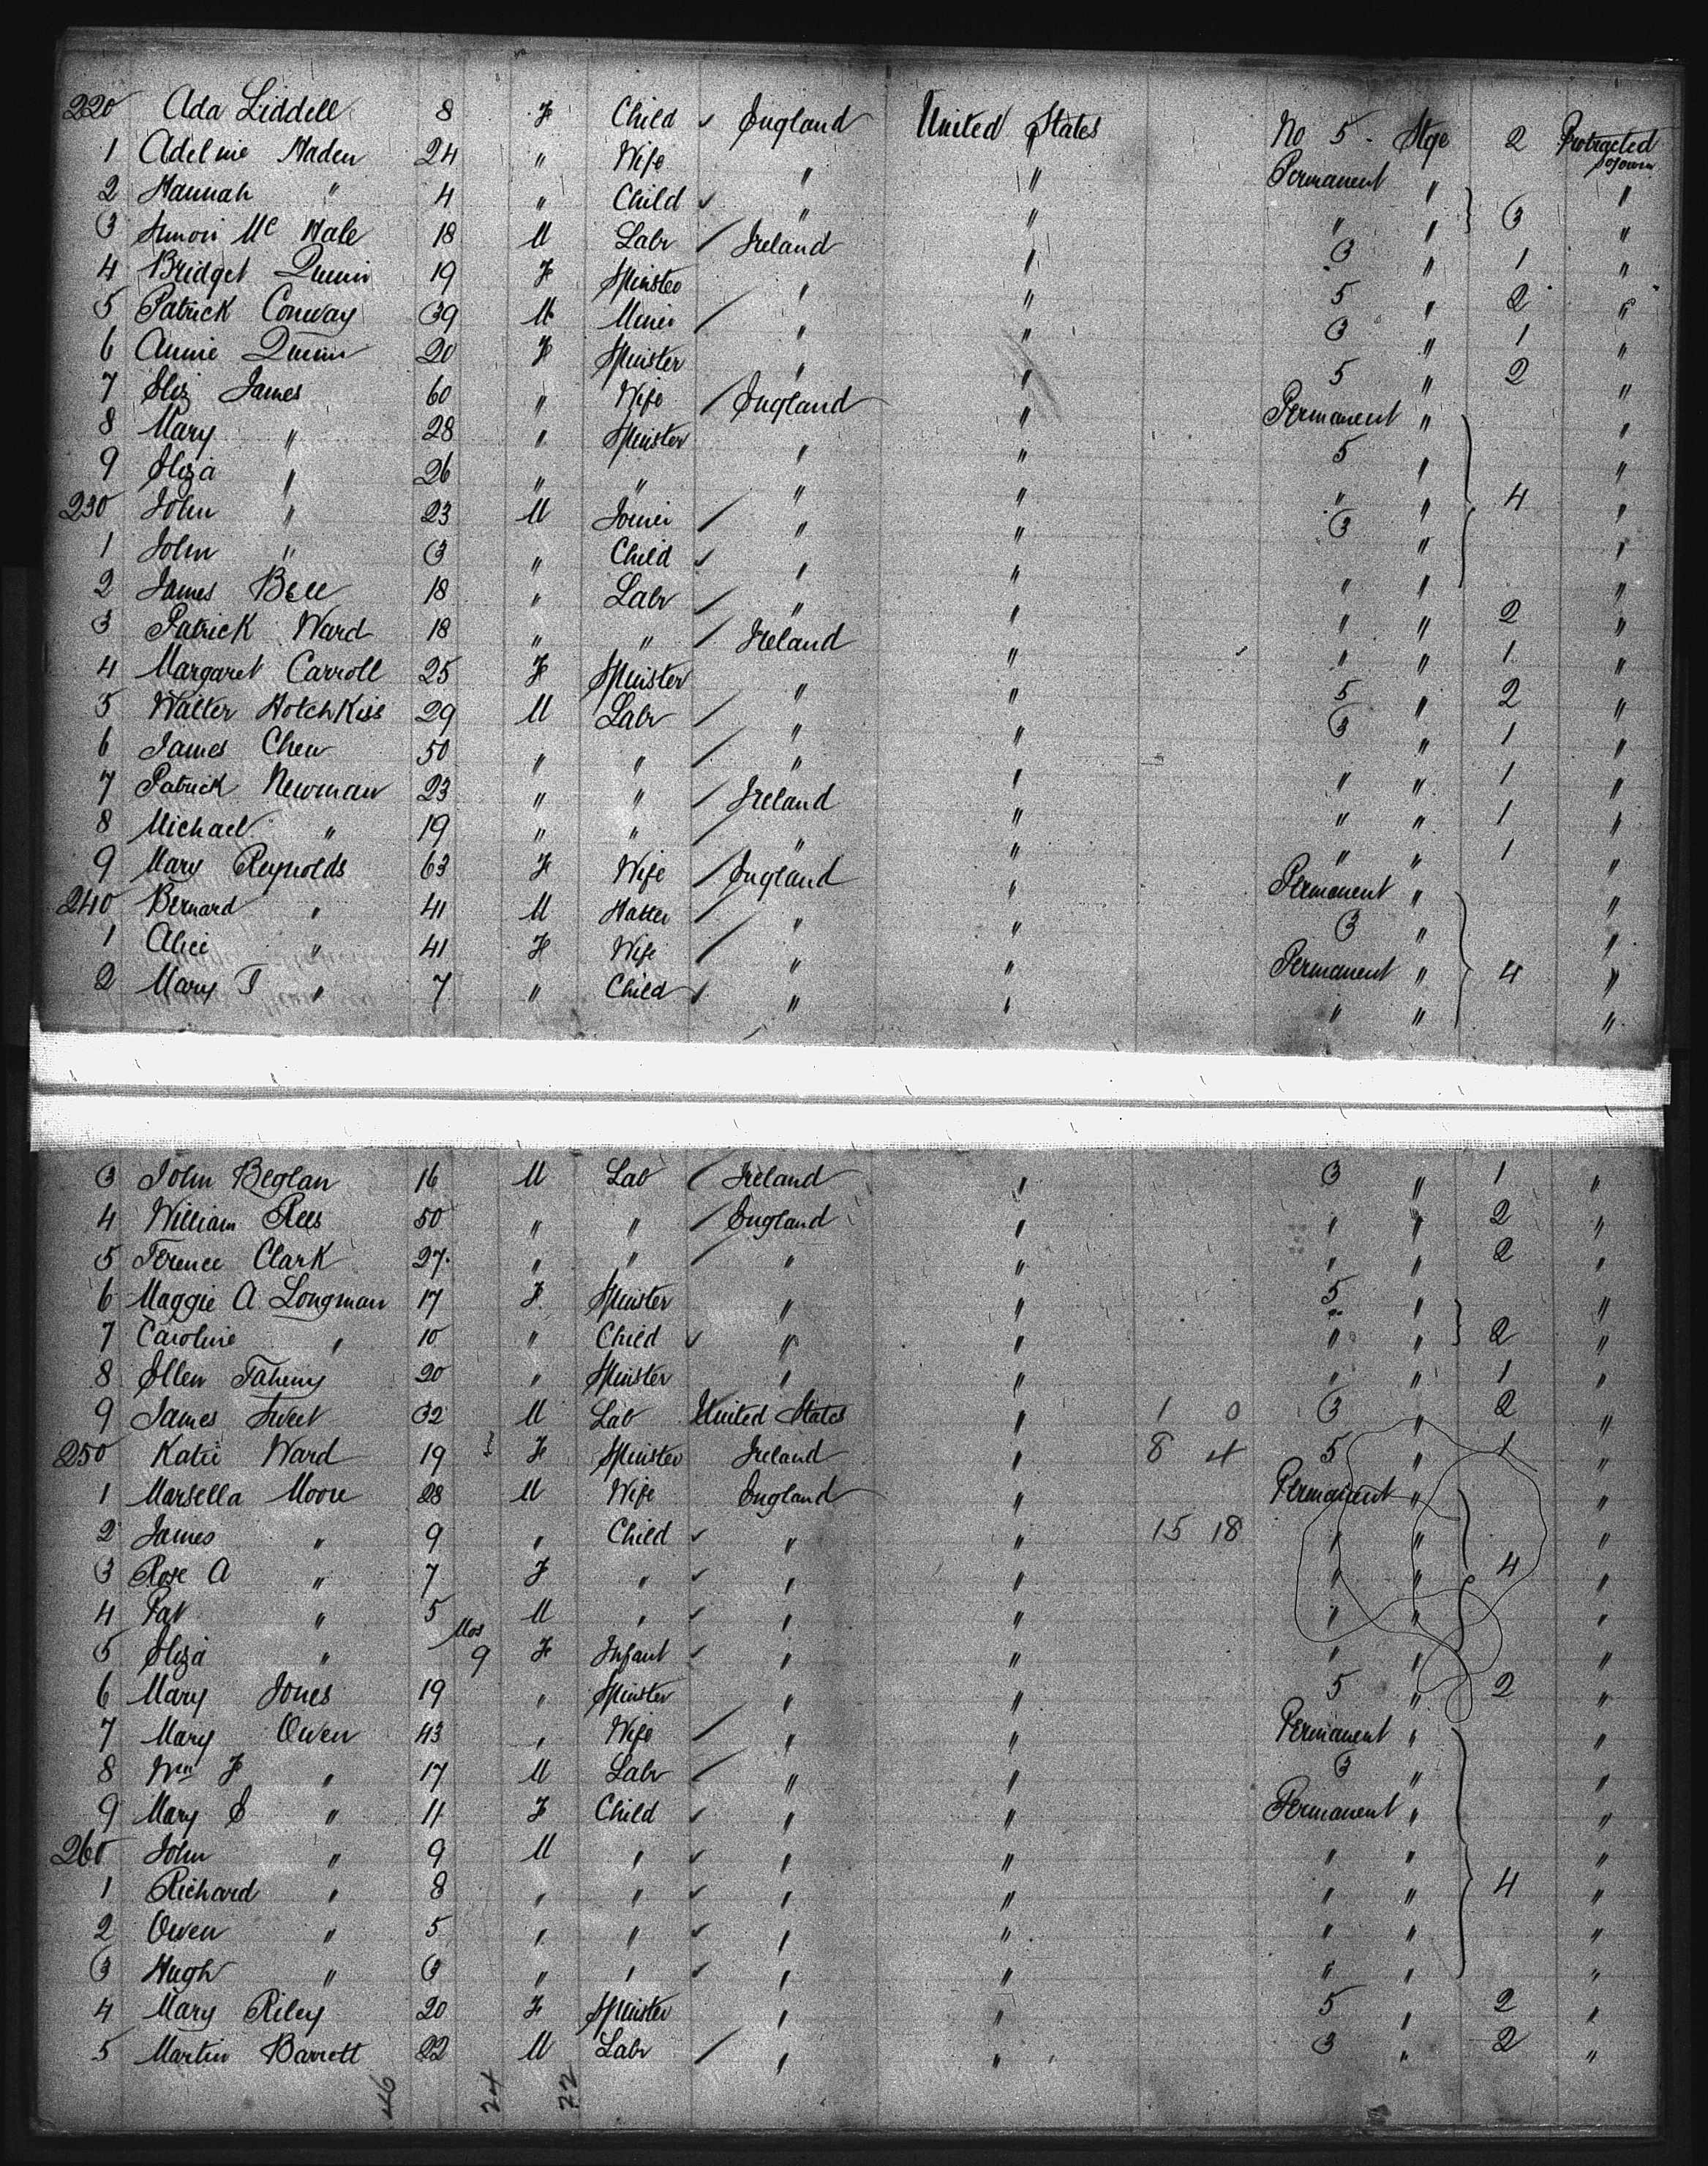 220 Ada Liddell 8 F Child ✓ England United States No 5 Stge 2 Protracted Sojourn
1 Adeline Haden 24 " Wife " " Permanent " "
2 Hannah " 4 " Child ✓ " " " " 3 "
3 Simon Mc Hale 18 M Labr / Ireland " 3 " 1 "
4 Bridget Quinn 19 F Spinster " " 5 " 2 "
5 Patrick Conway 39 M Miner / " " 3 " 1 "
6 Annie Quinn 20 F Spinster " " 5 " 2 "
7 Eliz James 60 " Wife / England " Permanent " "
8 Mary " 28 " Spinster " " 5 " "
9 Eliza " 26 " " " " " " 4 "
230 John " 23 M Joiner / " " 3 " "
1 John " 3 " Child ✓ " " " " "
2 James Bell 18 " Labr / " " " " 2 "
3 Patrick Ward 18 " " / Ireland " " " 1 "
4 Margaret Carroll 25 F Spinster " " 5 " 2 "
5 Walter Hotchkiss 29 M Labr / " " 3 " 1 "
6 James Chew 50 " " / " " " " 1 "
7 Patrick Newman 23 " " / Ireland " " " 1 "
8 Michael " 19 " " / " " " " 1 "
9 Mary Reynolds 63 F Wife / England " Permanent " "
240 Bernard " 41 M Hatter / " " 3 " "
1 Alice " 41 F Wife / " " Permanent " 4 "
2 Mary T " 7 " Child ✓ " " " " "
3 John Beglan 16 M Lab / Ireland " 3 " 1 "
4 William Rees 50 " " / England " " " 2 "
5 Terence Clark 27 " " / " " " " 2 "
6 Maggie A Longman 17 F Spinster " " 5 " "
7 Caroline " 10 " Child ✓ " " " " 2 "
8 Ellen Faheny 20 " Spinster " " " " 1 "
9 James Sweet 32 M Lab United States " 1 0 3 " 2 "
250 Katie Ward 19 F Spinster Ireland " 8 4 5 " 1 "
1 Marsella Moore 28 M Wife England " Permanent " "
2 James " 9 " Child ✓ " " 15 18 " " "
3 Rose A " 7 F " ✓ " " " " 4 "
4 Pat " 5 M " ✓ " " " " "
5 Eliza " Mos 9 F Infant ✓ " " " " "
6 Mary Jones 19 " Spinster " " 5 " 2 "
7 Mary Owen 43 " Wife / " " Permanent " "
8 Wm F " 17 M Labr / " " 3 " "
9 Mary E " 11 F Child ✓ " " Permanent " "
260 John " 9 M " ✓ " " " " "
1 Richard " 8 " " ✓ " " " " 4 "
2 Owen " 5 " " ✓ " " " " "
3 Hugh " 3 " " ✓ " " " " "
4 Mary Riley 20 F Spinster " " 5 " 2 "
5 Martin Barrett 22 M Labr / " " 3 " 2 "
46 24 22